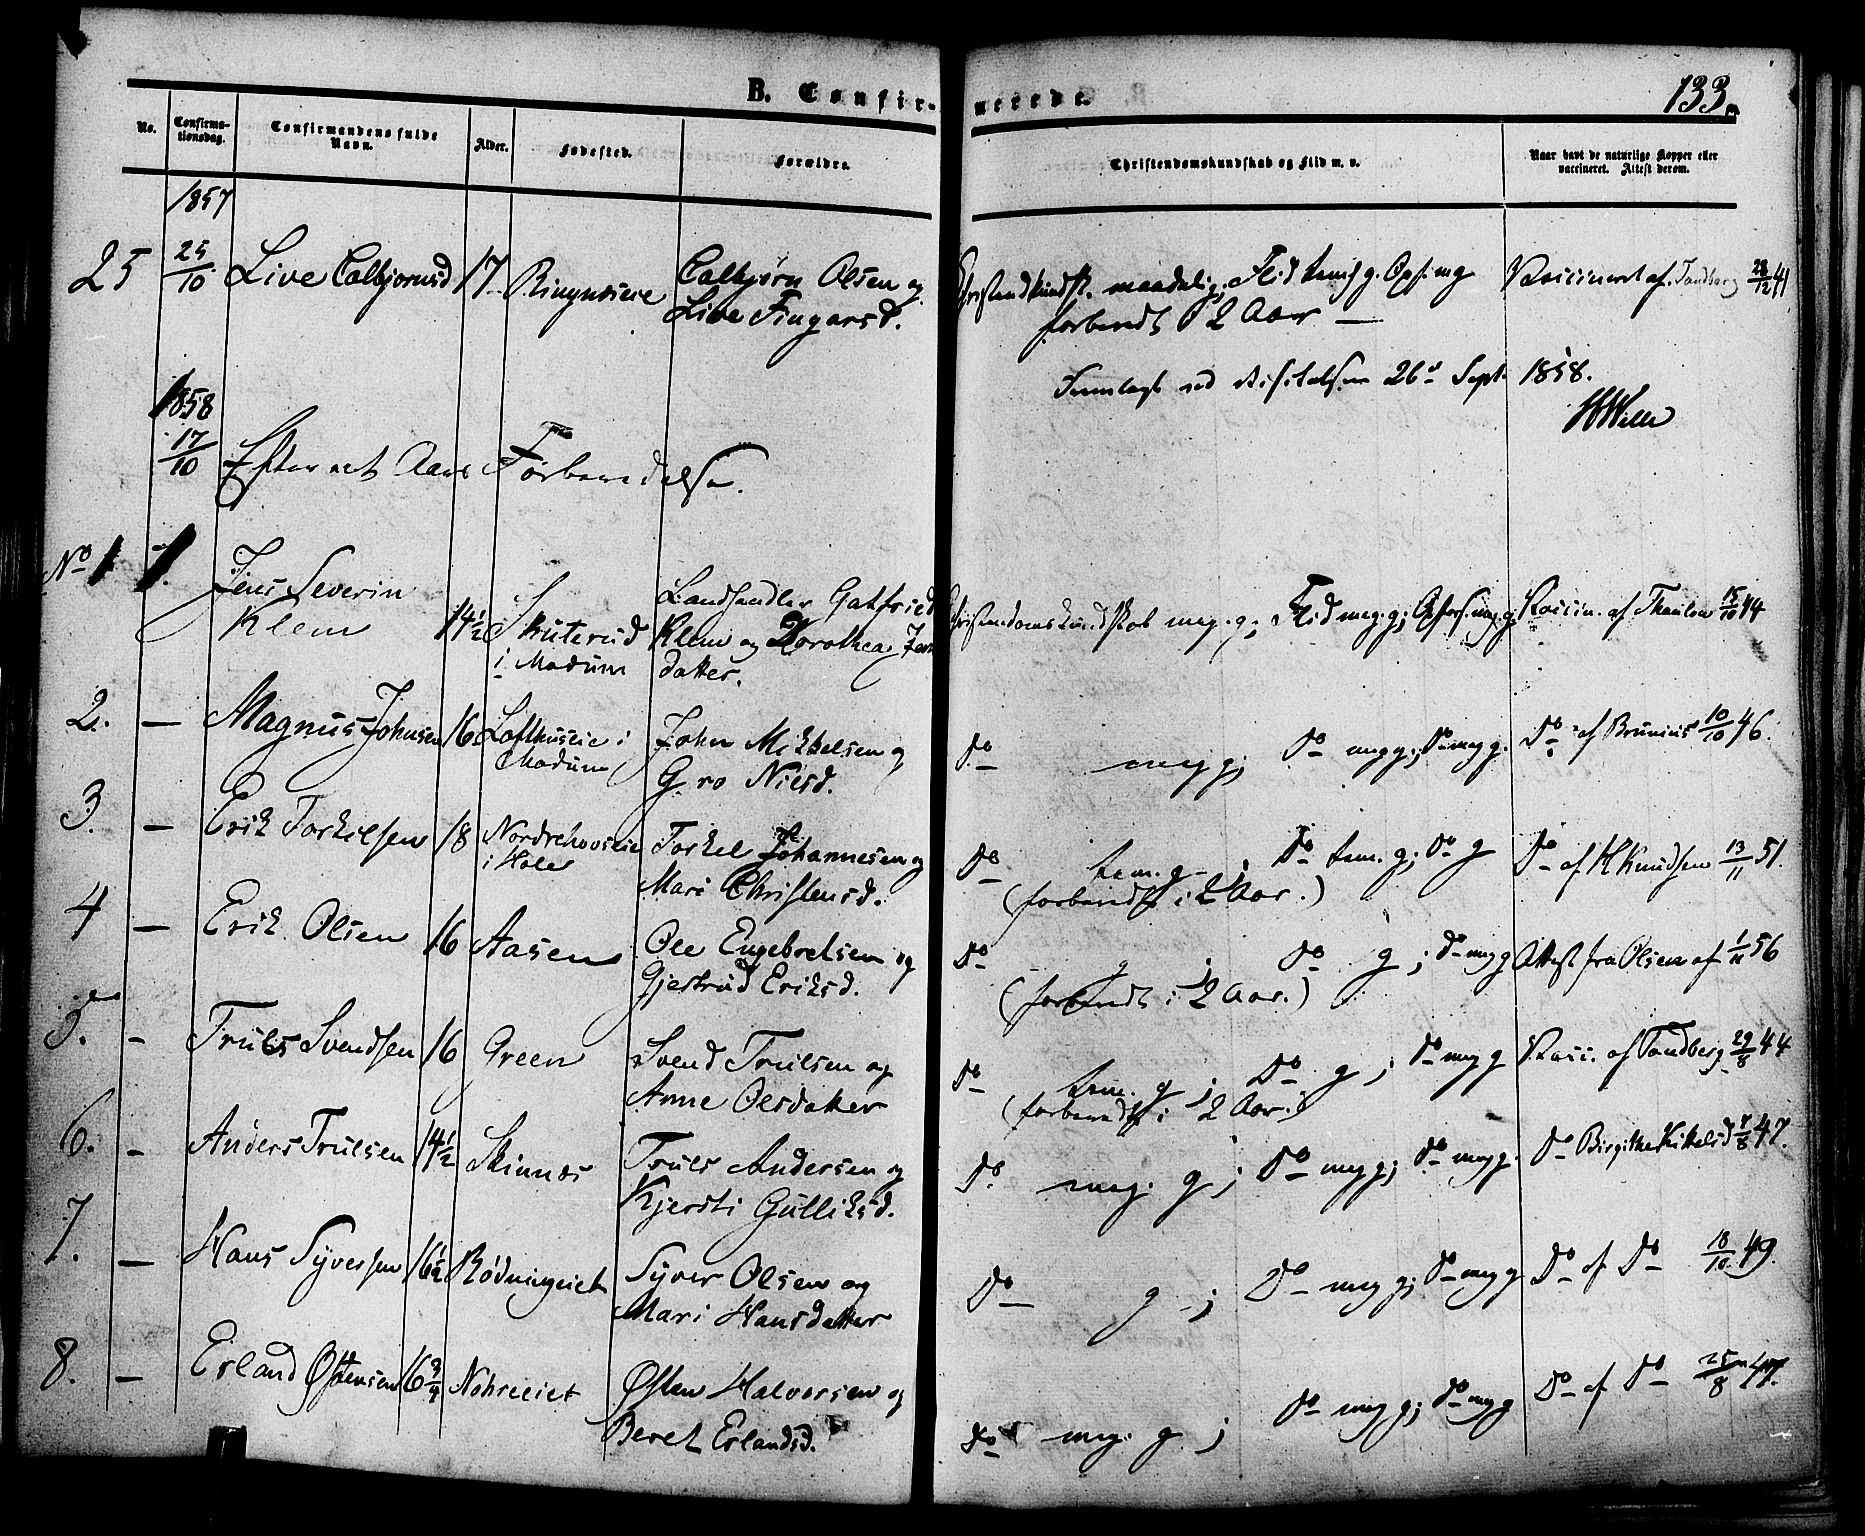 B. Confir-
nerede.
133.
No.
Confirma-
tionsdag.
Confirmandens fulde
Navn.
Alder.
Fødested.
Forældre.
Christendomskundskab og Flid m. v.
Naar havt de naturlige Kopper eller
vaccineret. Attest derom.
1857
25 25/10 Live Colbjørnsd 17. Colbjørn Olsen og
Live Fingarsd.
Christendkundsk. maadelig; Flid tem. g. Opf. mg
forberedt 2 Aar —
Vaccineret af Tandberg 28/12 41
Fremlagt ved Visitatsen 26d Sept. 1858.
1858
17/10 Efter et Aars Forberedelse.
No 1 1. Jens Severin
Klem 14½ Skuterud
i Modum
Landhandler Gotfried
Klem og Dorothea Jens
datter.
Christendomskundskab meg. g; Flid meg. g; Opførs. meg. g
Vaccin. af Thaulow 15/10 44
2. — Magnus Johnsen 16 Lofthuseie i
Modum
John Mikkelsen og
Gro Nielsd.
Do meg g; Do meg g; Do meg g.
Do af Brunius 10/10 46.
3. — Erik Torkilsen 18 Nordrehovseie
i Hole
Torkel Johannesen og
Mari Christensd.
Do tem. g; Do tem. g; Do g
(forberedt i 2 Aar.)
Do af H Knudsen 13/11 51.
4 — Erik Olsen 16 Aasen
Ole Engebretsen og
Gjertrud Eriksd.
Do g; Do g; Do meg g
(forberedt i 2 Aar.)
Attest fra Olsen af 1/11 56
5. - Truls Svendsen 16 Green
Svend Trulsen og
Anne Olsdatter
Do tem. g; Do g; Do meg g
(forberedt i 2 Aar.)
Vacc. af Tandberg 29/8 44
6. - Anders Trulsen 14½ Skinnes
Truls Andersen og
Kjersti Gulliksd.
Do meg. g; Do meg g; Do meg g.
Do Birgitha Kittelsd 7/8 47.
7. — Hans Syversen 16½ Rødningeiet
Syver Olsen og
Mari Hansdatter
Do g; Do meg g; Do meg g
Do af Do 18/10 49.
8. — Erland Østensen 16¾
Østen Halvorsen og
Beret Erlandsd.
Do meg. g; Do meg g; Do meg g
Do af Do 25/8 47.